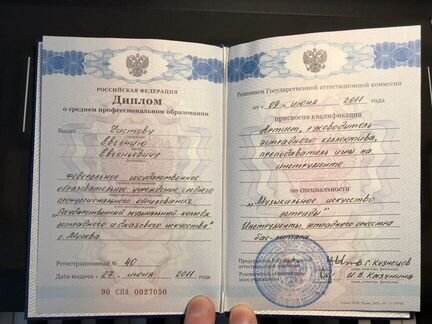 РОССИЙСКАЯ ФЕДЕРАЦИЯ
Диплом
о среднем профессиональном образовании
Выдан Чистову
Евгению
Евгеньевичу
Федеральное государственное
образовательное учреждение среднего
профессионального образования
„Государственный музыкальный колледж
эстрадного и джазового искусства"
г. Москва
Регистрационный № 40
Дата выдачи «27» июня 2011 года
90 СПА 0027050
Решением Государственной аттестационной комиссии
от «09» июня 2011 года
присвоена квалификация
Артист, руководитель
эстрадного коллектива,
преподаватель игры на
инструменте
по специальности
„Музыкальное искусство
эстрады"
Инструменты эстрадного оркестра
бас-гитара
Председатель Государственной
аттестационной
В.Г. Кузнецов
И.В. Казунина